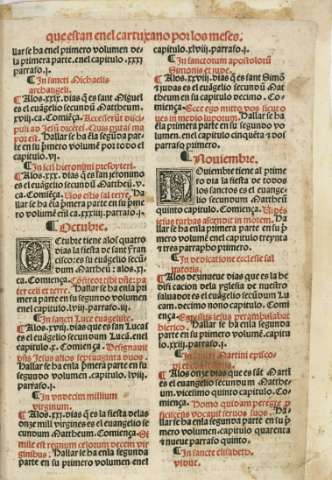 que estan enel cartuxano por los meses.
llar se ha enel primero volumen de
la primera parte. enel capitulo .xxxj
parrafo .j.
¶ In sancti Michaelis
archangeli.
¶ Alos .xxix. dias q̃s sant Miguel
es el euãgelio secundũ Mattheum.
xviij. ca. Comiença. Accesserũt disci-
puli ad Jesũ
est. Hallar se ha ẽla segũda par
te enel primero volumẽ por todo el
capitulo .vj.
¶ In scti hieronimi presbyteri.
¶ Alos .xxx. dias q̃s san jeronymo
es el euãgelio secundũ Mattheũ. v.
ca. Comiẽça. Vos estis sal terre. Ha
llar se ha enla primera parte enel pri
mero volumẽ enl capi. parrafo .j.
¶ Octubre.
Octubre tiene alos quatro
dias la fiesta de sant fran
cisco: es su euãgelio secũ
dum Mattheũ: alos .xj.
ca. Comiença. Cõfiteor tibi dñe: pa
ter celi et terre. Hallar se ha enla pri
mera parte enel segundo volumen
enel capitulo parrafo
¶ In sancti Luce euãgeliste.
¶ Alos .xviij. dias que es san Lucas
es el euangelio secundum Lucã. enel
capitulo .x. Comiença. Designauit
dñs Jesus alios septuaginta duos.
Hallar se ha enla p̃mera parte enel
segundo volumen. capitulo
parrafo .j.
¶ In vndecim millium
virginum.
¶ Alos .xxj. dias q̃ es la fiesta delas
onze mill virgines es el euangelio se
cundum Mattheum. Comiença. Si
mile est regnum celorum decem vir
ginibus: Hallar se ha enla segunda
parte en su segundo volumen enel
capitulo .xlviij. parrafo .j.
¶ In sanctorum apostolorũ
Simonis et iude.
¶ Alos .xxviij. dias q̃ es sant Simõ
z judas es el euangelio secundũ Mat
theum en su capitulo decimo. Co-
miença. Ecce ego mitto vos sicut o
ues in medio luporum. Hallar se ha
enla primera parte en su segundo vo
lumen. enel capitulo cinquẽta z dos
parrafo primero.
¶ Nouiembre.
Nouiembre tiene al prime
ro dia la fiesta de todos
los sanctos es el euan-
gelio secundum Mattheum
quinto capitulo. Comiença. Vidẽs
jesus turbas ascendit in montem. Ha
llar se ha enla primera parte enel p̃
mero volumen enel capitulo treynta
z tres parrapho primero.
¶ In dedicatione ecclesie sal
uatoris.
¶ Alos nueue dias que es la de
dicacion dela yglesia de nuestro
saluador es el euãgelio secundum Lu
cam. decimo nono capitulo. Comi
ença. Egressus jesus perambulabat
hierico. Hallar se ha enla segunda
parte en su primero volumẽ. capitulo
.xxiiij. parrafo .j.
¶ In sancti Martini episco
¶ Alos onze dias que es sãt Marti
es el euangelio secundum Mattheum.
vicesimo quinto capitulo. Comien
ça. Homo quidam peregre p̃
ficiscens vocauit seruos suos. Ha
llar se ha enla segunda parte en su p̃
mero volumen. capitulo quarenta
z nueue parrafo quinto.
¶ In sancte elisabeth
vidue.